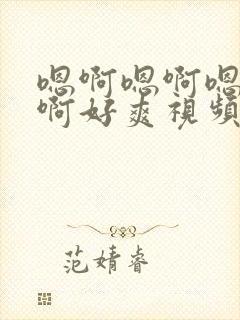 嗯啊嗯啊嗯
啊好爽視頻
范婧睿